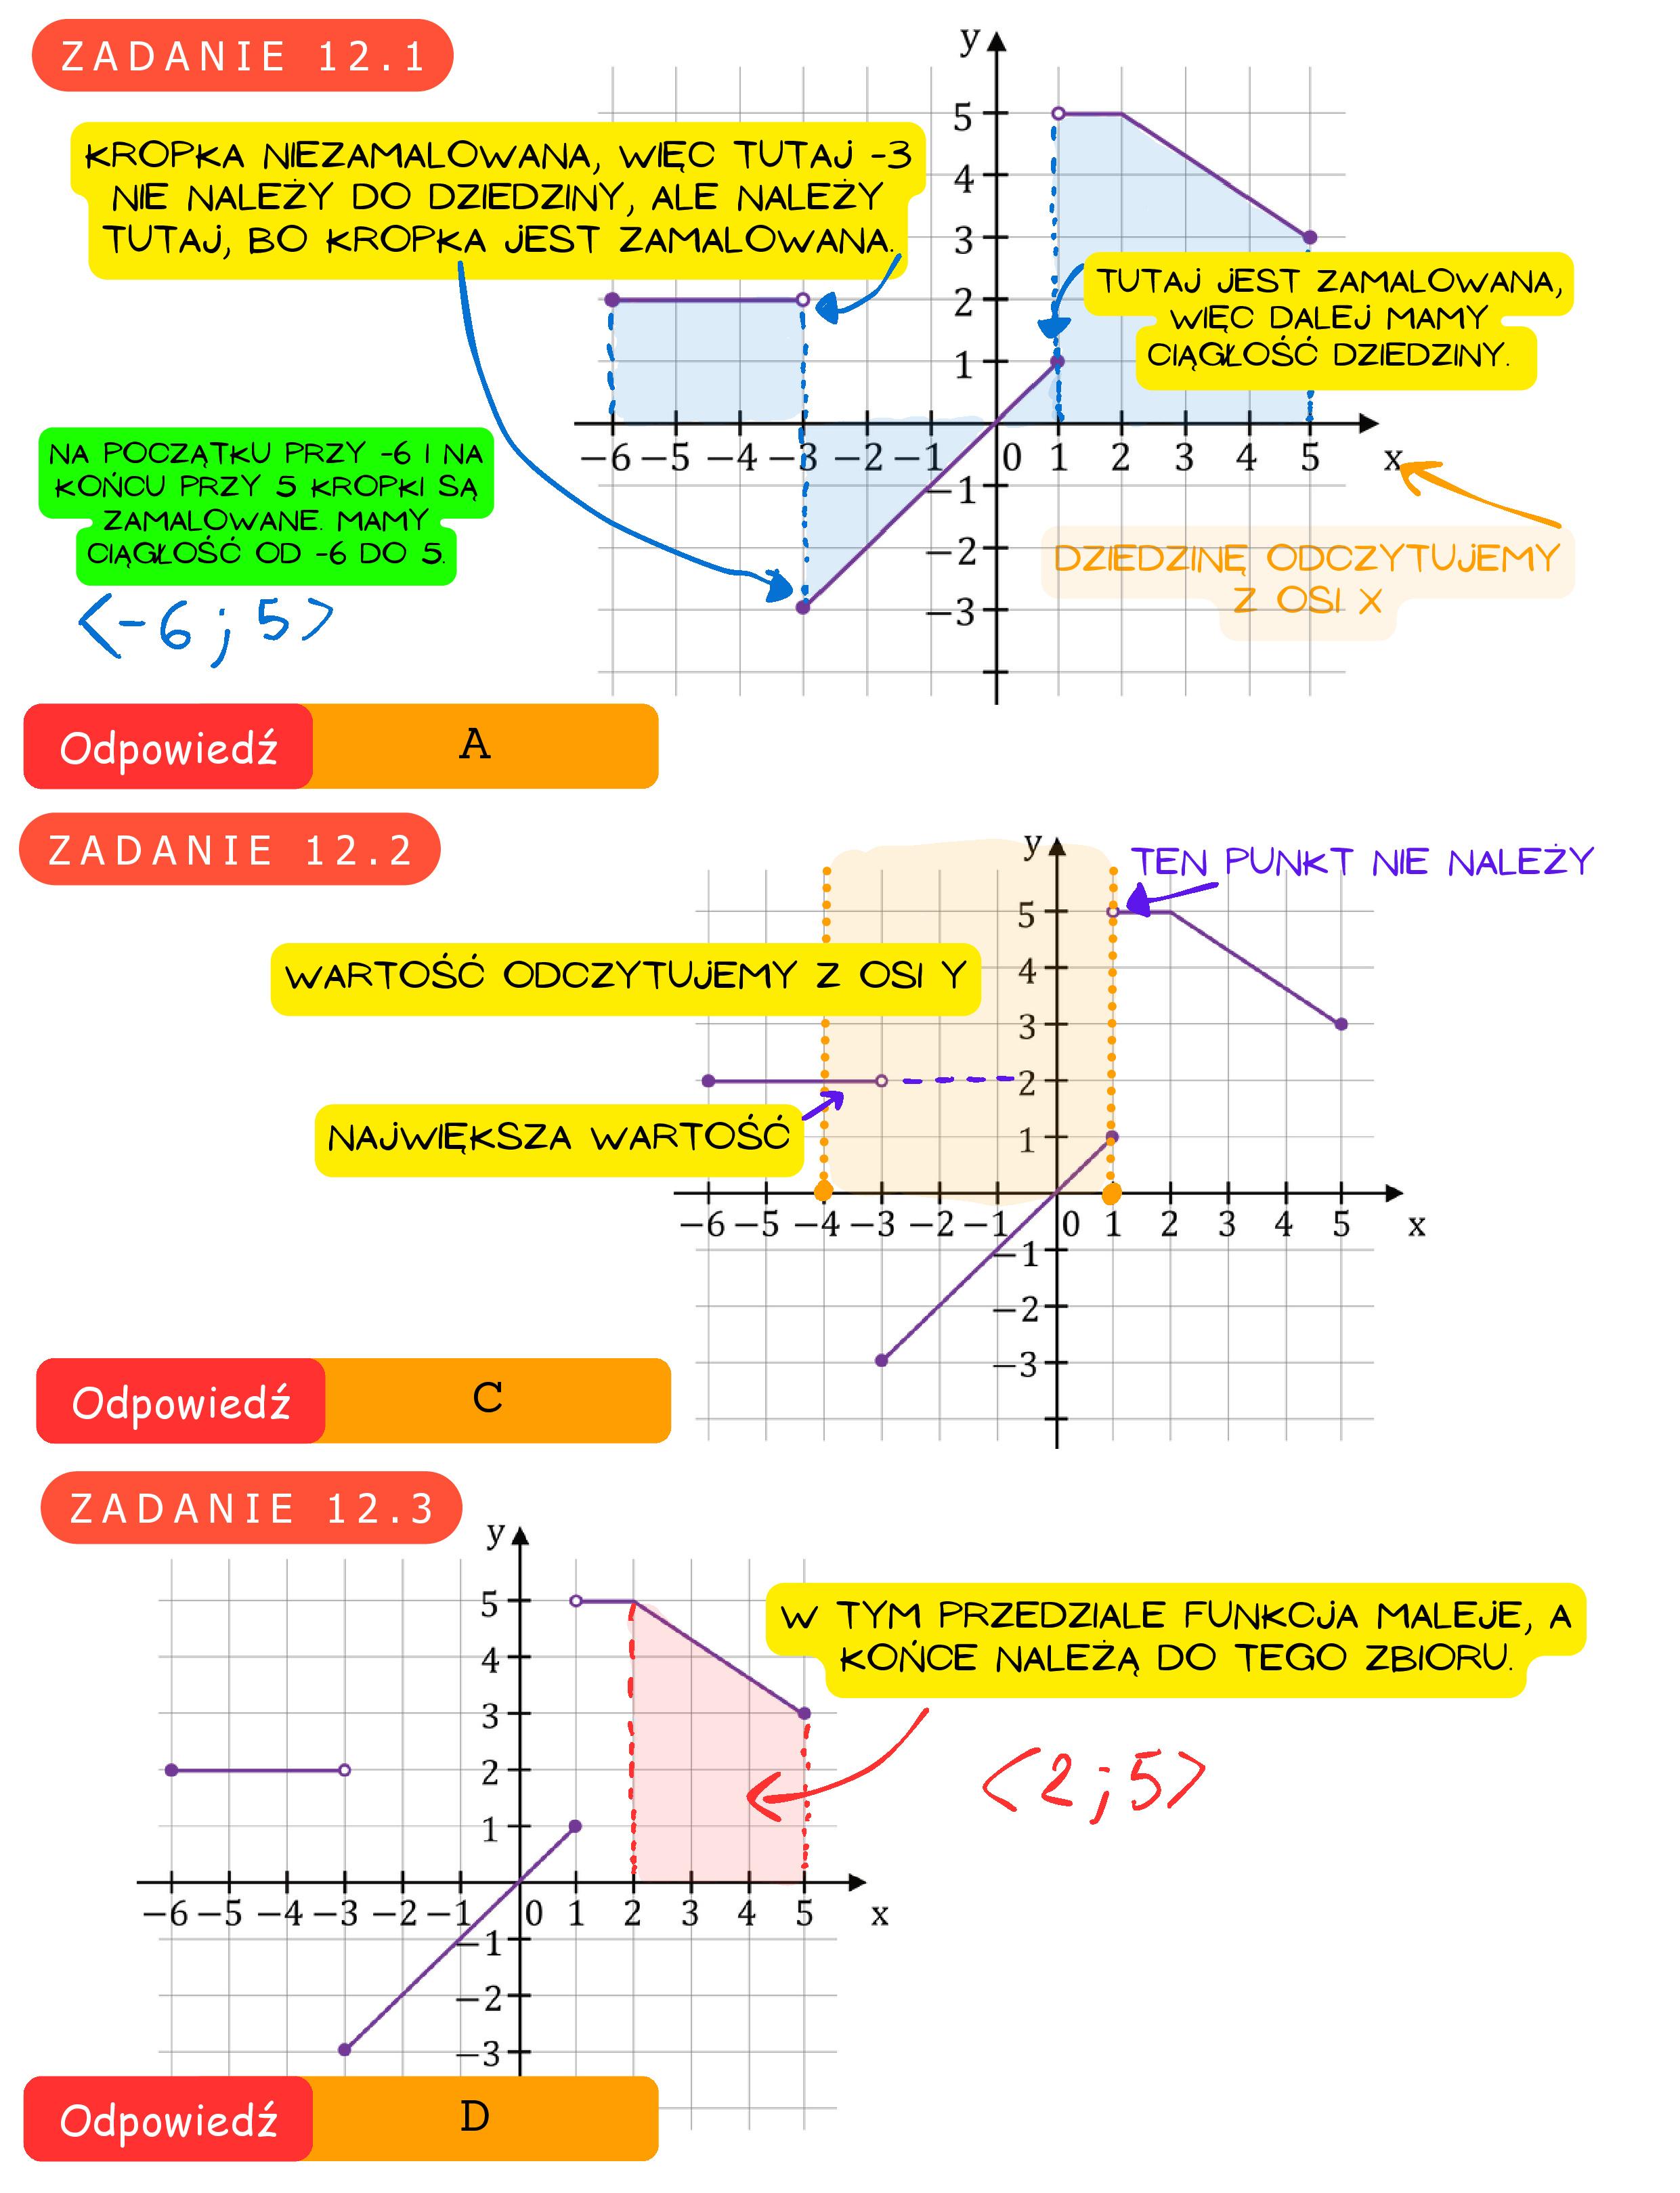 ZADANIE 12.1
KROPKA NIEZAMALOWANA, WIĘC TUTAJ -3
NIE NALEŻY DO DZIEDZINY, ALE NALEŻY
TUTAJ, BO KROPKA JEST ZAMALOWANA.
y
5
4
3
2
1
TUTAJ JEST ZAMALOWANA,
WIĘC DALEJ MAMY
CIĄGŁOŚĆ DZIEDZINY.
−6 −5 −4 −3 −2 −1 0 1 2 3 4 5 x
−1
−2
−3
NA POCZĄTKU PRZY -6 I NA
KOŃCU PRZY 5 KROPKI SĄ
ZAMALOWANE. MAMY
CIĄGŁOŚĆ OD -6 DO 5.
<-6;5>
DZIEDZINĘ ODCZYTUJEMY
Z OSI X
Odpowiedź A
ZADANIE 12.2
y
TEN PUNKT NIE NALEŻY
5
4
3
2
1
WARTOŚĆ ODCZYTUJEMY Z OSI Y
NAJWIĘKSZA WARTOŚĆ
−6 −5 −4 −3 −2 −1 0 1 2 3 4 5 x
−1
−2
−3
Odpowiedź C
ZADANIE 12.3
y
5
4
3
2
1
W TYM PRZEDZIALE FUNKCJA MALEJE, A
KOŃCE NALEŻĄ DO TEGO ZBIORU.
<2;5>
−6 −5 −4 −3 −2 −1 0 1 2 3 4 5 x
−1
−2
−3
Odpowiedź D